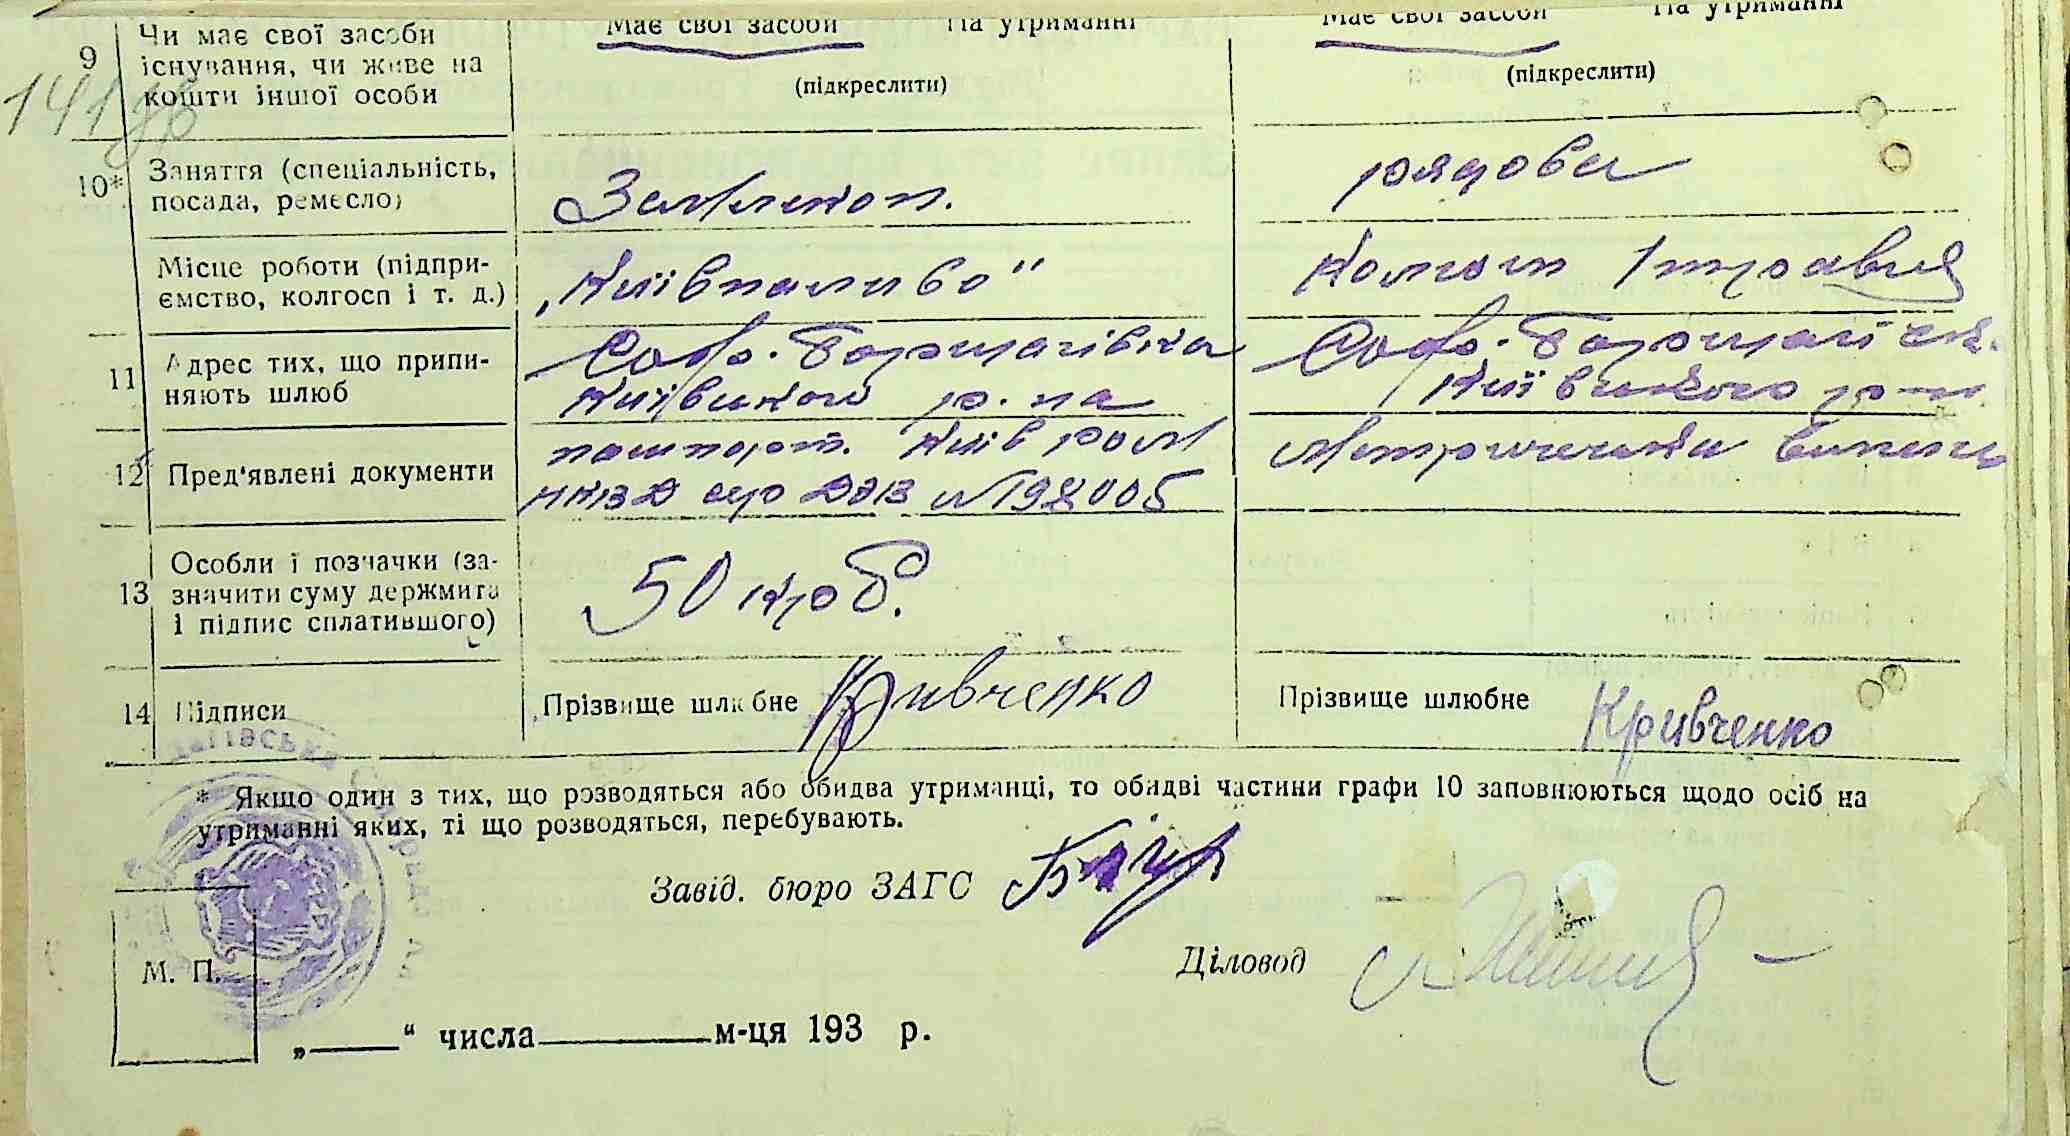 Має свої засоби На утриманні
Має свої засоби На утриманні
9 Чи має свої засоби
існування, чи живе на
кошти іншої особи
(підкреслити)
(підкреслити)
141
10* Заняття (спеціальність,
посада, ремесло)
Землекоп.
рядова
Місце роботи (підпри-
ємство, колгосп і т. д.)
„Київпаливо"
Колгосп 1 травня
11 Адрес тих, що припи-
няють шлюб
Соф. Борщагівка
Київського р-на
Соф. Борщагівк.
Київського р-н
12 Пред'явлені документи
паспорт. Київ
НКВД № 198005
Метрична
13 Особли і позначки (за-
значити суму держмита
і підпис сплатившого)
50 крб.
14 Підписи
Прізвище шлюбне Кривченко
Прізвище шлюбне Кривченко
* Якщо один з тих, що розводяться або обидва утриманці, то обидві частини графи 10 заповнюються щодо осіб на
утриманні яких, ті що розводяться, перебувають.
Завід. бюро ЗАГС
Діловод
М. П.
„____“ числа________м-ця 193 р.